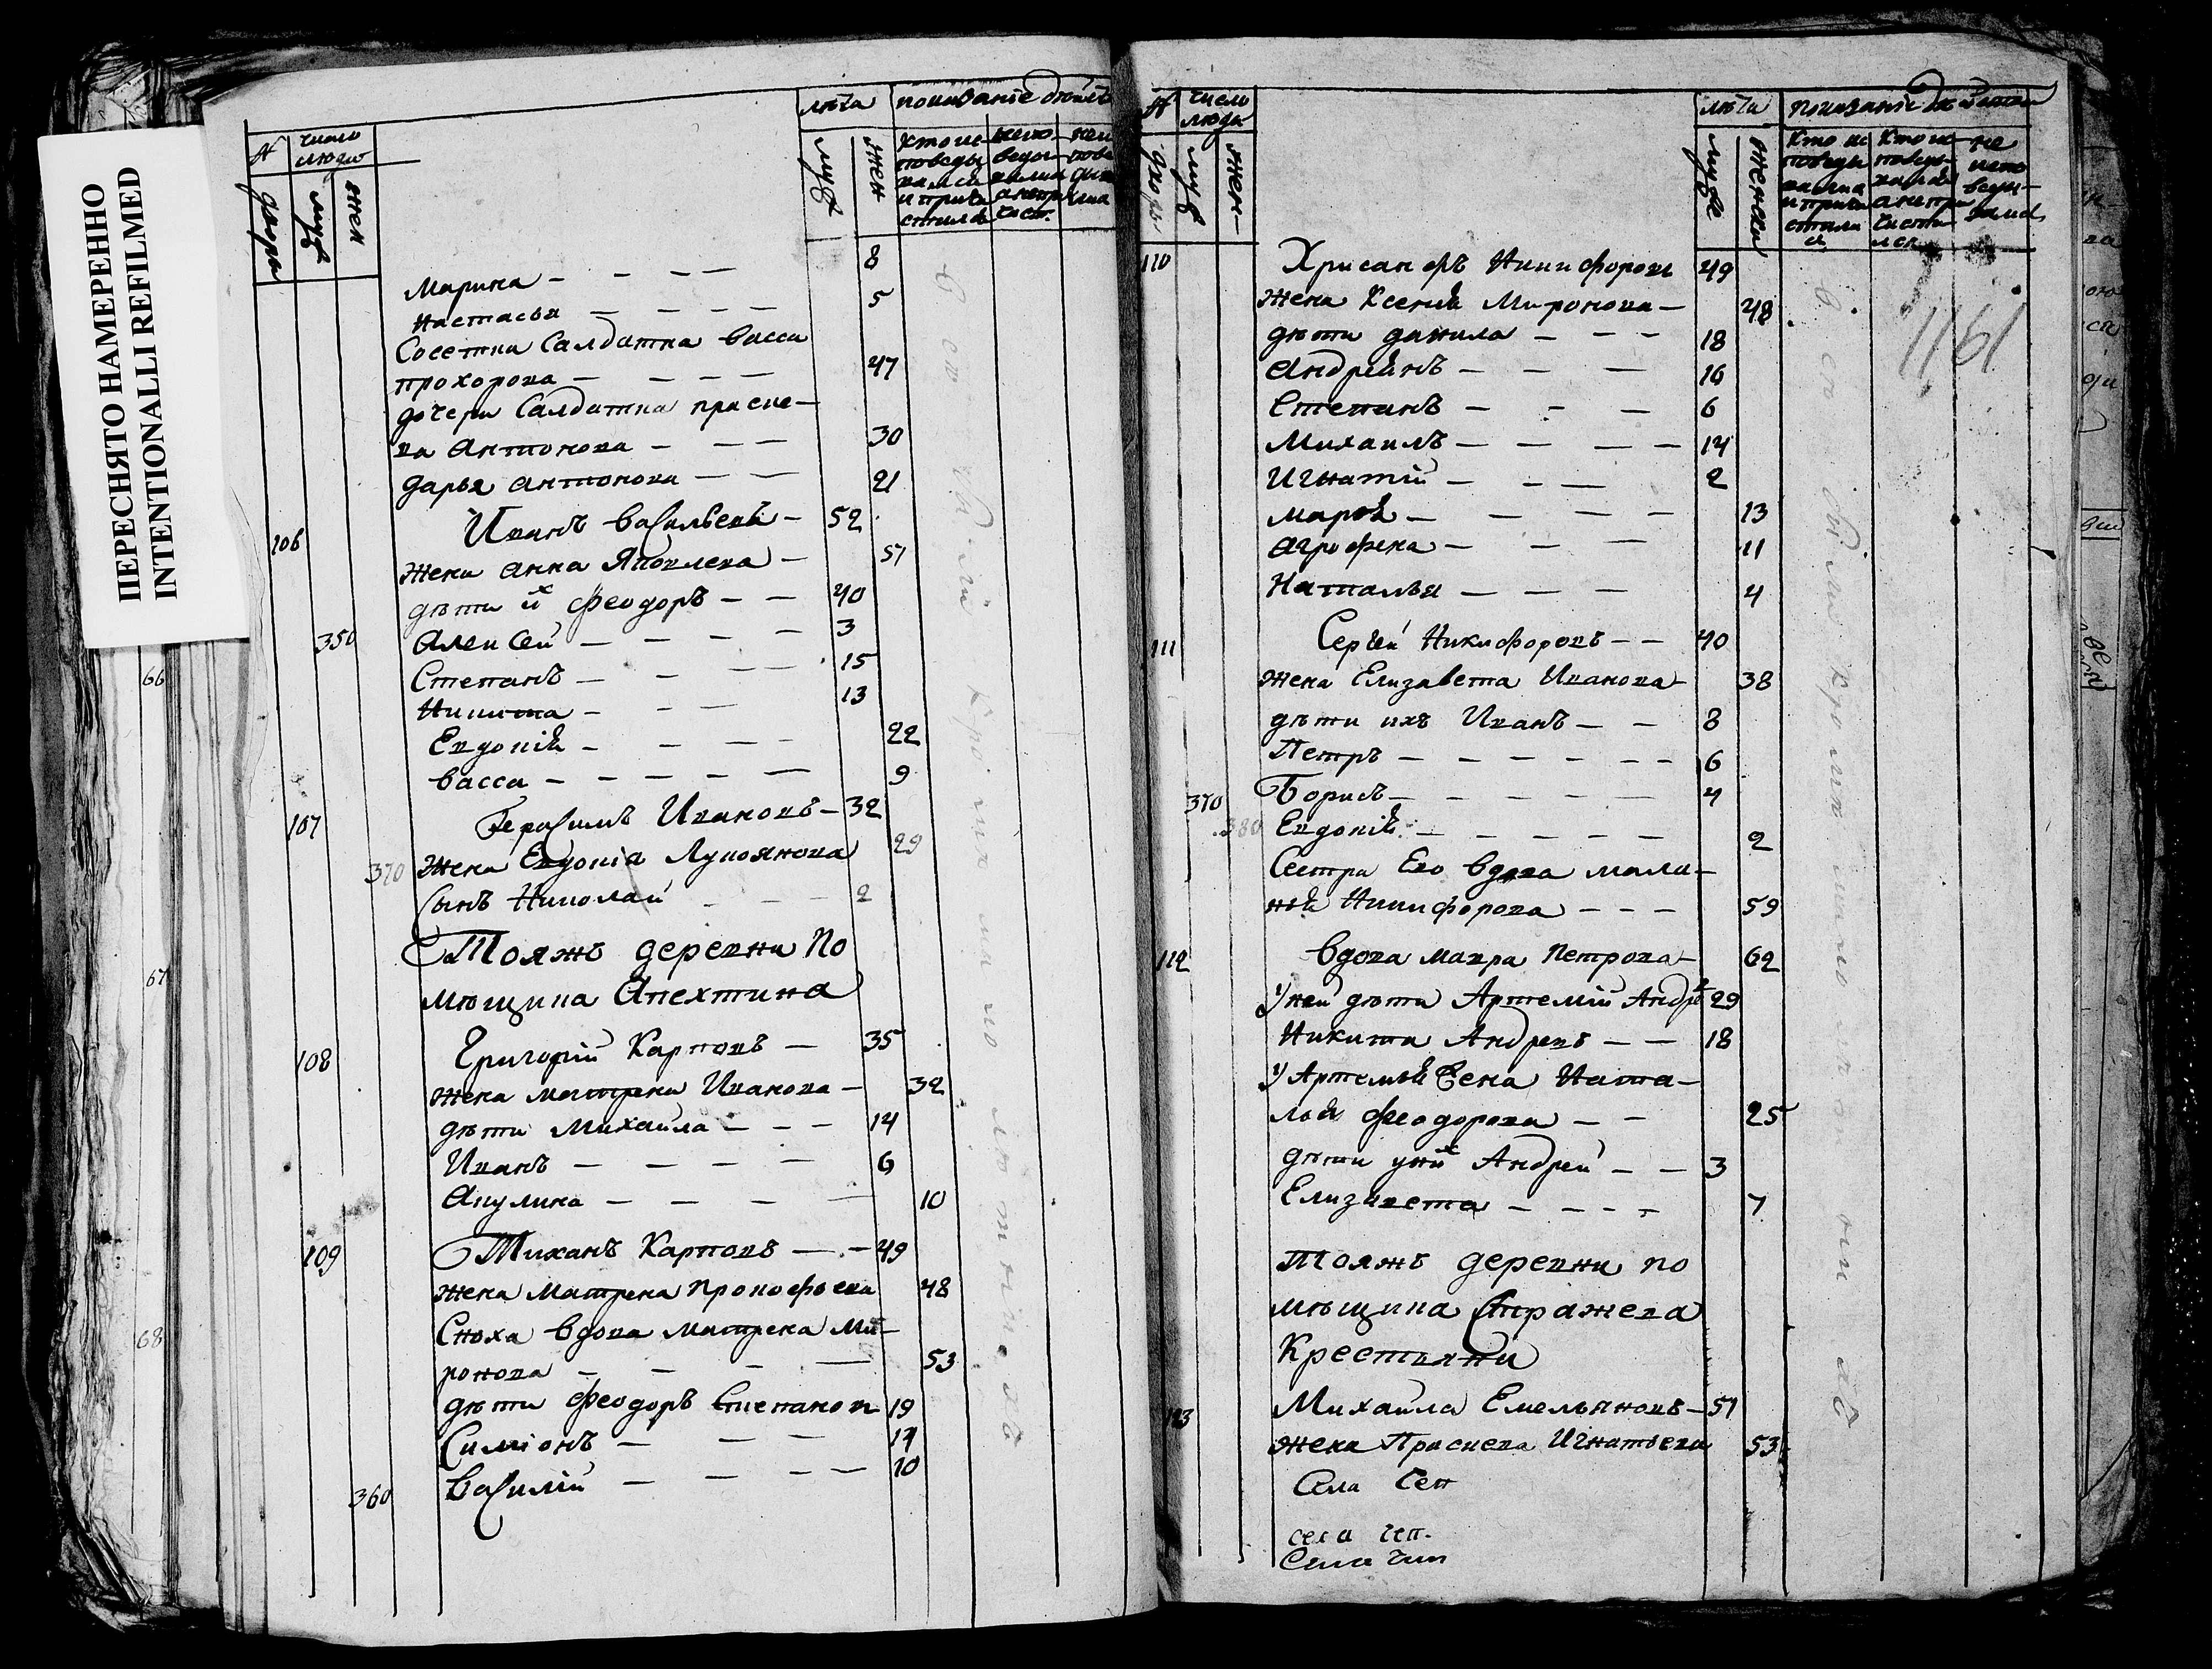 ПЕРЕСНЯТО НАМЕРЕННО
INTENTIONALLI REFILMED
66
67
68
№ число людей лѣта показаніе
дворы муж жен муж жен
Марина — 8
Настасья — 5
Солдатка Васса
Прохорова — 47
дочери Салдатка праске-
ва Антонова — 30
дарья Антонова — 21
106 Иванъ Васильевъ — 52
жена Анна Яковлева — 51
дѣти их Феодоръ — 40
350 Алексей — 3
Степанъ — 15
Никита — 13
Евдокія — 22
Васса — 9
107 Герасимъ Ивановъ — 32
370 Жена Евдокіа Лукоянова 29
Сынъ Николай — 2
Тояжъ деревни по
мѣщика Апехтина
108 Григорій Карповъ — 35
жена матрена Иванова — 32
дѣти Михаила — 14
Иванъ — 6
Акулина — 10
109 Тиханъ Карповъ — 49
жена Матрена Прокофьева 48
Сноха вдова матрена Ми-
ронова — 53
дѣти Феодоръ Степанов 19
Симіонъ — 17
360 Василій — 10
№ число люди лѣта показаніе
дворы муж жен муже женска
1161
110 Хрисанфъ Никифоровъ 49
жена Ксенія Миронова — 48
дѣти данила — 18
Андреянъ — 16
Степанъ — 6
Михаилъ — 14
Игнатій — 2
Марѳа — 13
Агрофена — 11
Наталья — 4
111 Сергѣй Никифоровъ — 40
жена Елизавета Иванова 38
дѣти ихъ Иванъ — 8
Петръ — 6
370 Борисъ — 4
380 Евдокія — 2
Сестра Его вдова мала-
нья Никифорова — 59
112 вдова мавра Петрова — 62
у ней дѣти Артемій Андре 29
Никита Андревъ — 18
у Артемья Жена Ната-
лья Феодорова — 25
дѣти у них Андрей — 3
Елизавета — 7
Тояжъ деревни по
мѣщика Стражева
Крестьяни
113 Михаила Емельяновъ — 51
жена Праскева Игнатьева 53
Села Сеп
села чеп.
Села чип